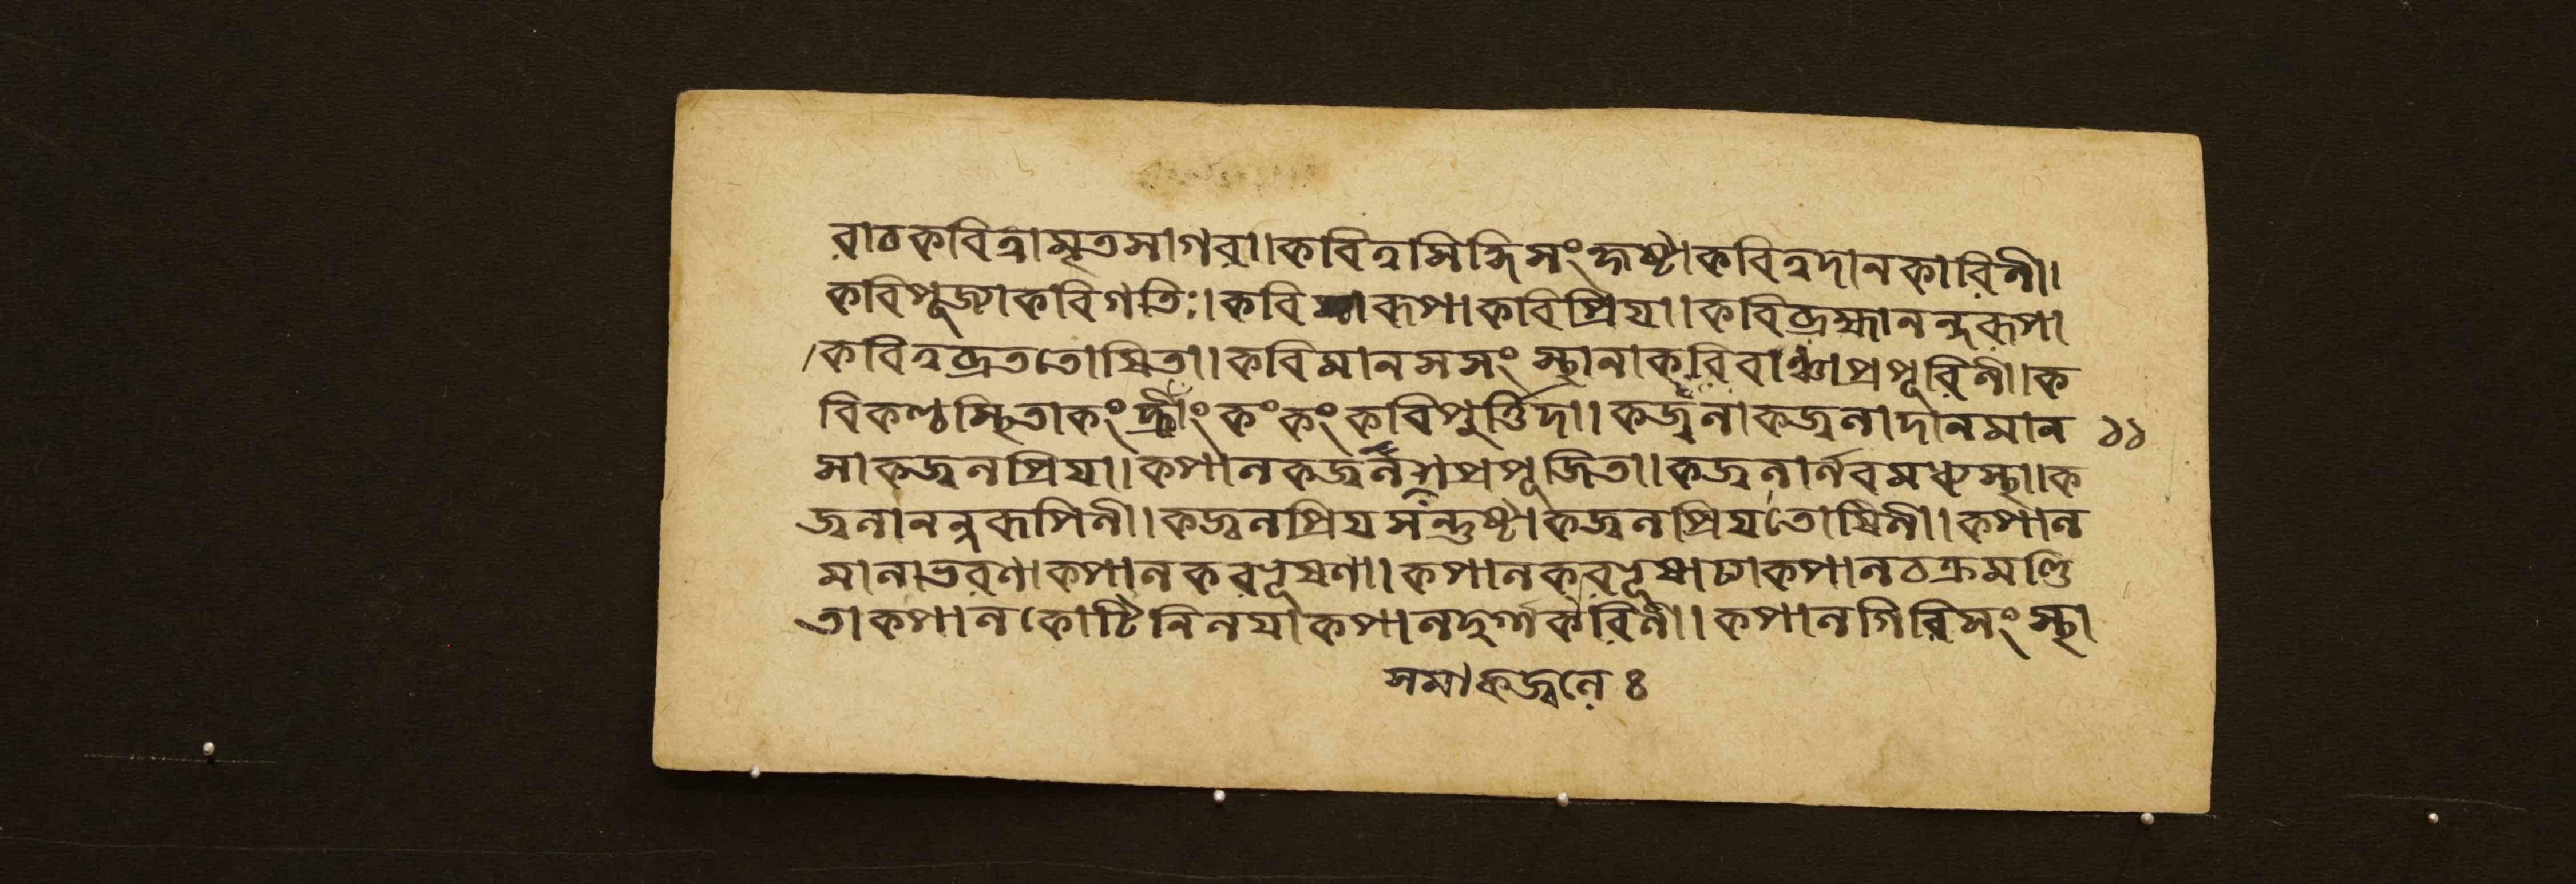 রাঠকবিত্বামৃতসাগরা।কবিত্বসিদ্ধিসংহৃষ্টাকবিত্বদানকারিনী।
কবিপূজ্যাকবিগতিঃ।কবি রূপাকবিপ্রিয়া।কবিব্রহ্মানন্দরূপা
কবিত্বব্রততোষিতা।কবিমানসসংস্থানাকবিবাঞ্ছাপ্রপূরিনী।ক
বিকণ্ঠস্থিতাকংহ্রীংকংকংকবিপুর্ত্তিদা।কজ্জলাকজ্জলাদানমান ১১
সাকজ্জলপ্রিয়া।কপালকজ্জলসমাপ্রপূজিতা।কজ্জলার্নবমধ্যস্থা।ক
জ্জলানন্দরূপিনী।কজ্জলপ্রিয়সন্তুষ্টাকজ্জলপ্রিয়তোষিনী।কপাল
মালাভরণাকপালকরভূষণা।কপালকরভূষাঢ্যাকপালচক্রমণ্ডি
তাকপালকোটিনিলয়াকপালদুর্গকারিনী।কপালগিরিসংস্থা
সমাকজ্জলেঃ